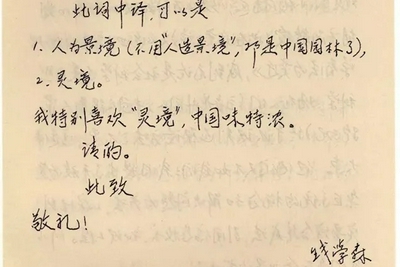 此词中译，可以是
1. 人为景境（不用“人造景境”，那是中国园林了），
2. 灵境。
我特别喜欢“灵境”，中国味特浓。
请酌。
此致
敬礼！
钱学森